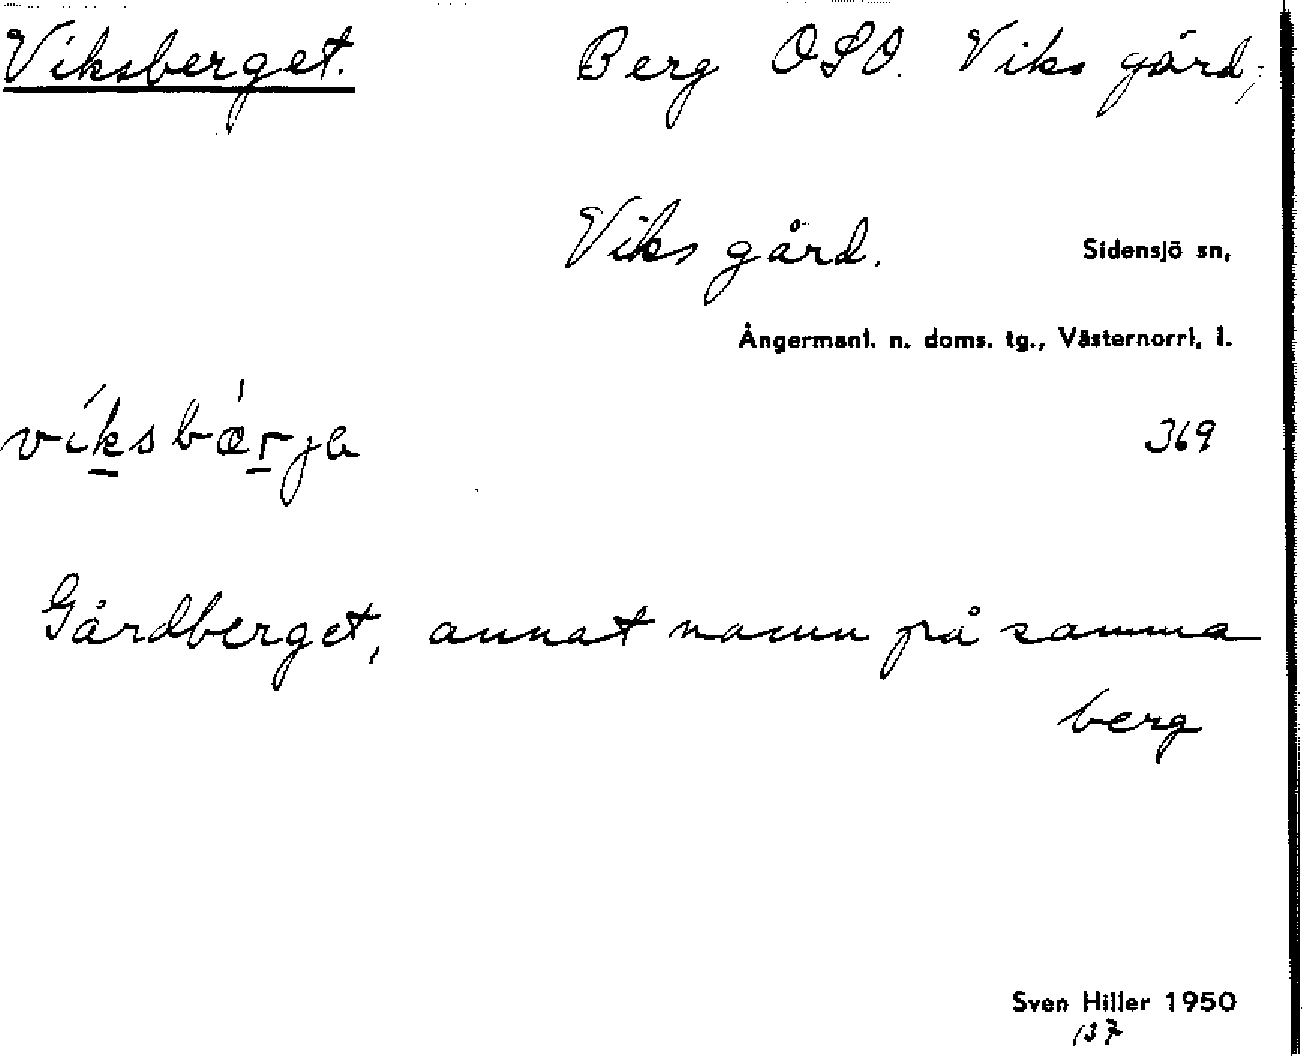 Viksberget. Berg OSO. Viks gård;
Viks gård. Sidensjö sn,
Ångermanl. n. doms. tg., Västernorrl. l.
víksbǽrja 369
Gårdberget, annat namn på samma
berg
Sven Hiller 1950
137